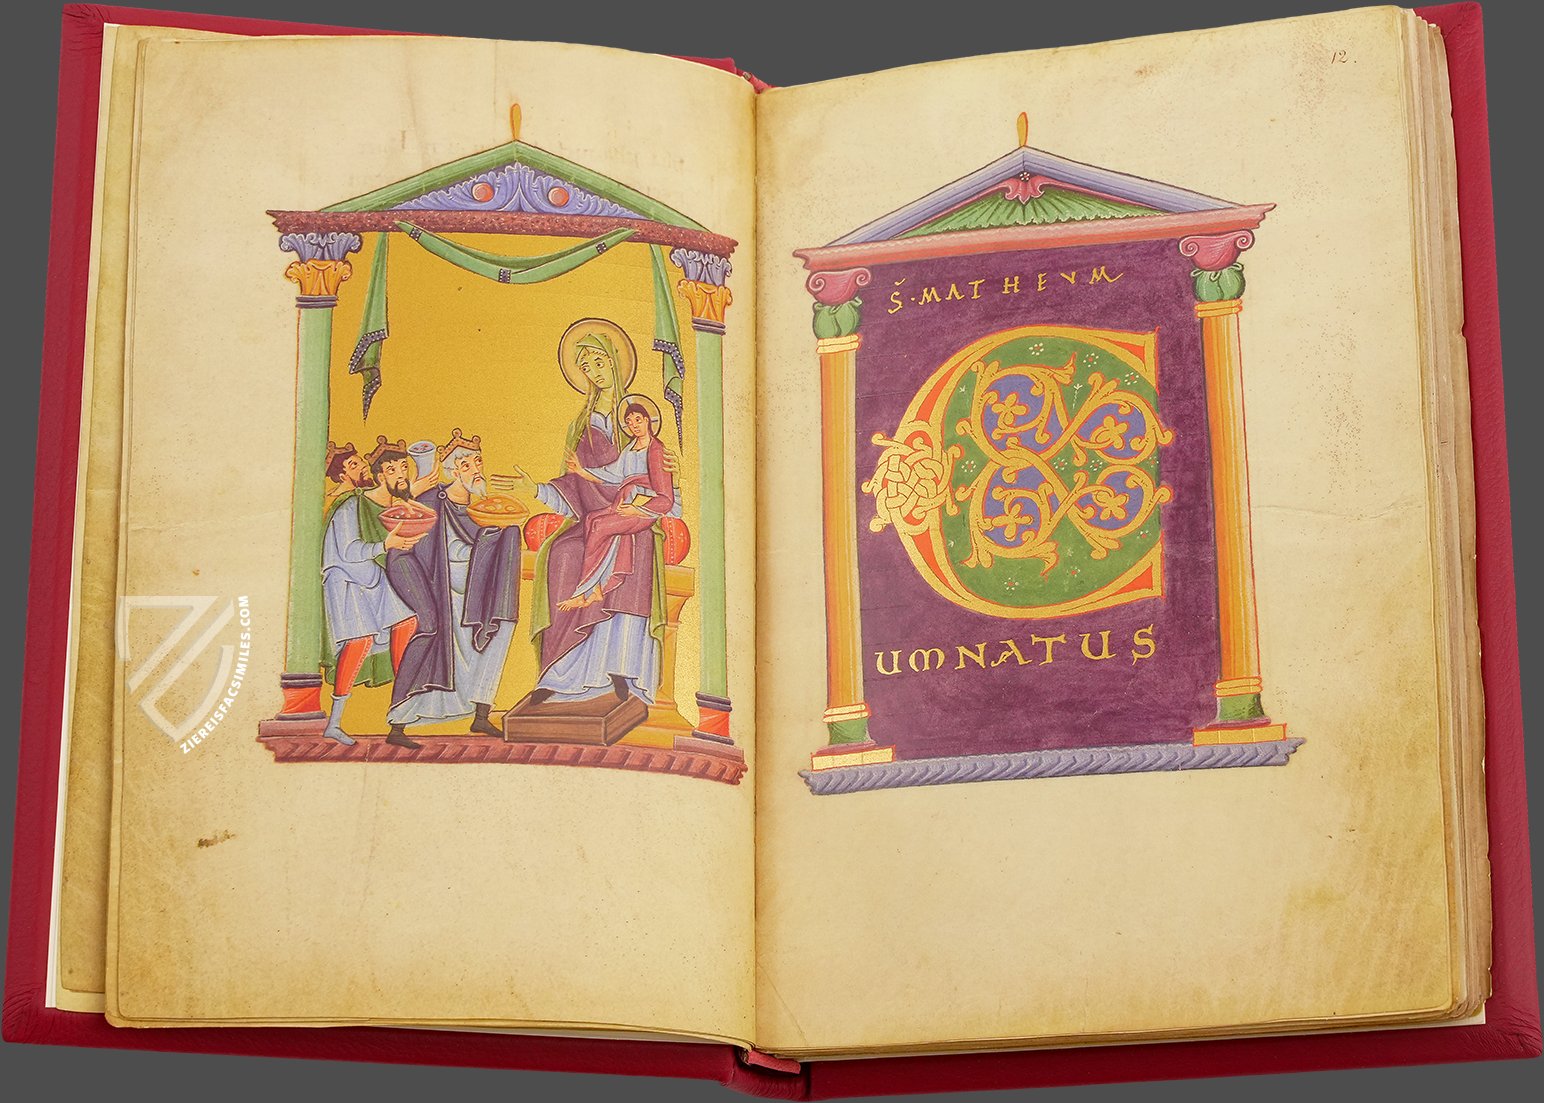 ZIEREISFACSIMILES.COM
12.
S̆·MATHEVM
C
UMNATUS